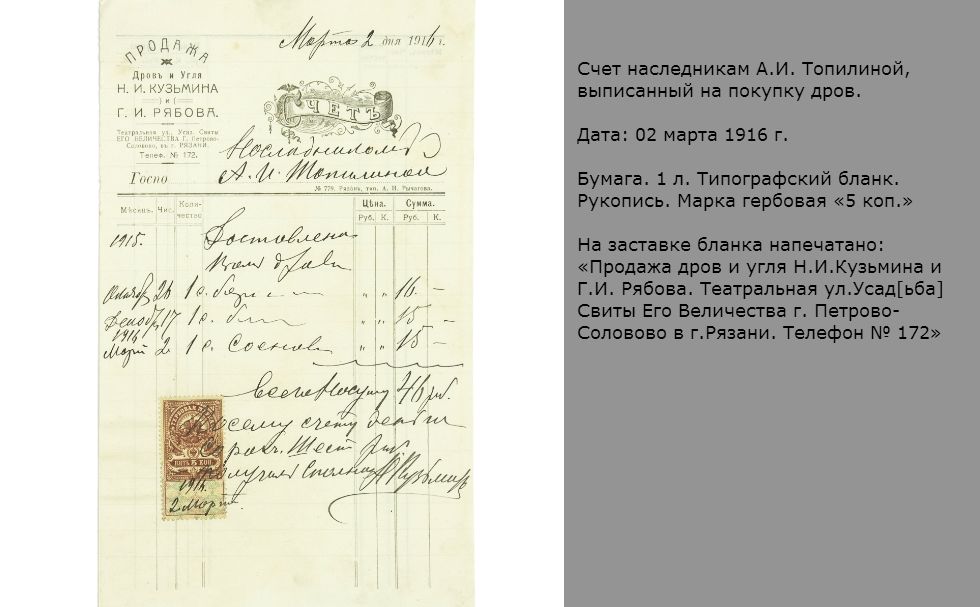 Марта 2 дня 1916 г.
ПРОДАЖА
Дровъ и Угля
Н. И. КУЗЬМИНА
и
Г. И. РЯБОВА.
Театральная ул., Усад. Свиты
ЕГО ВЕЛИЧЕСТВА Г. Петрово-
Соловово, въ г. РЯЗАНИ.
Телеф. № 172.
СЧЕТЪ
Наследникомъ
Госпо А. И. Топилиной
№ 779. Рязань, тип. А. Н. Рычагова.
Мѣсяцъ. Чис. Коли-чество Цѣна. Сумма.
Руб. К. Руб. К.
1915. Доставлено
Вам дрова
Октябр 26 1 с. „ „ 16 —
Декабр 17 1 с. „ „ 15 —
1916
Март 2 1 с. Соснов „ „ 15 —
Всего 46 руб.
По сему счету деньги
Сорок Шест руб
получил Кузьмин
ПЯТЬ 5 КОП.
1916
2 Март
Счет наследникам А.И. Топилиной,
выписанный на покупку дров.
Дата: 02 марта 1916 г.
Бумага. 1 л. Типографский бланк.
Рукопись. Марка гербовая «5 коп.»
На заставке бланка напечатано:
«Продажа дров и угля Н.И.Кузьмина и
Г.И. Рябова. Театральная ул.Усад[ьба]
Свиты Его Величества г. Петрово-
Соловово в г.Рязани. Телефон № 172»